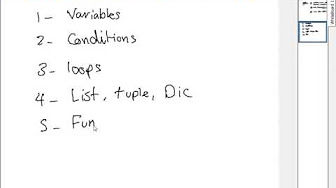 1 - Variables
2 - Conditions
3 - loops
4 - List, tuple, Dic
5 - Fun